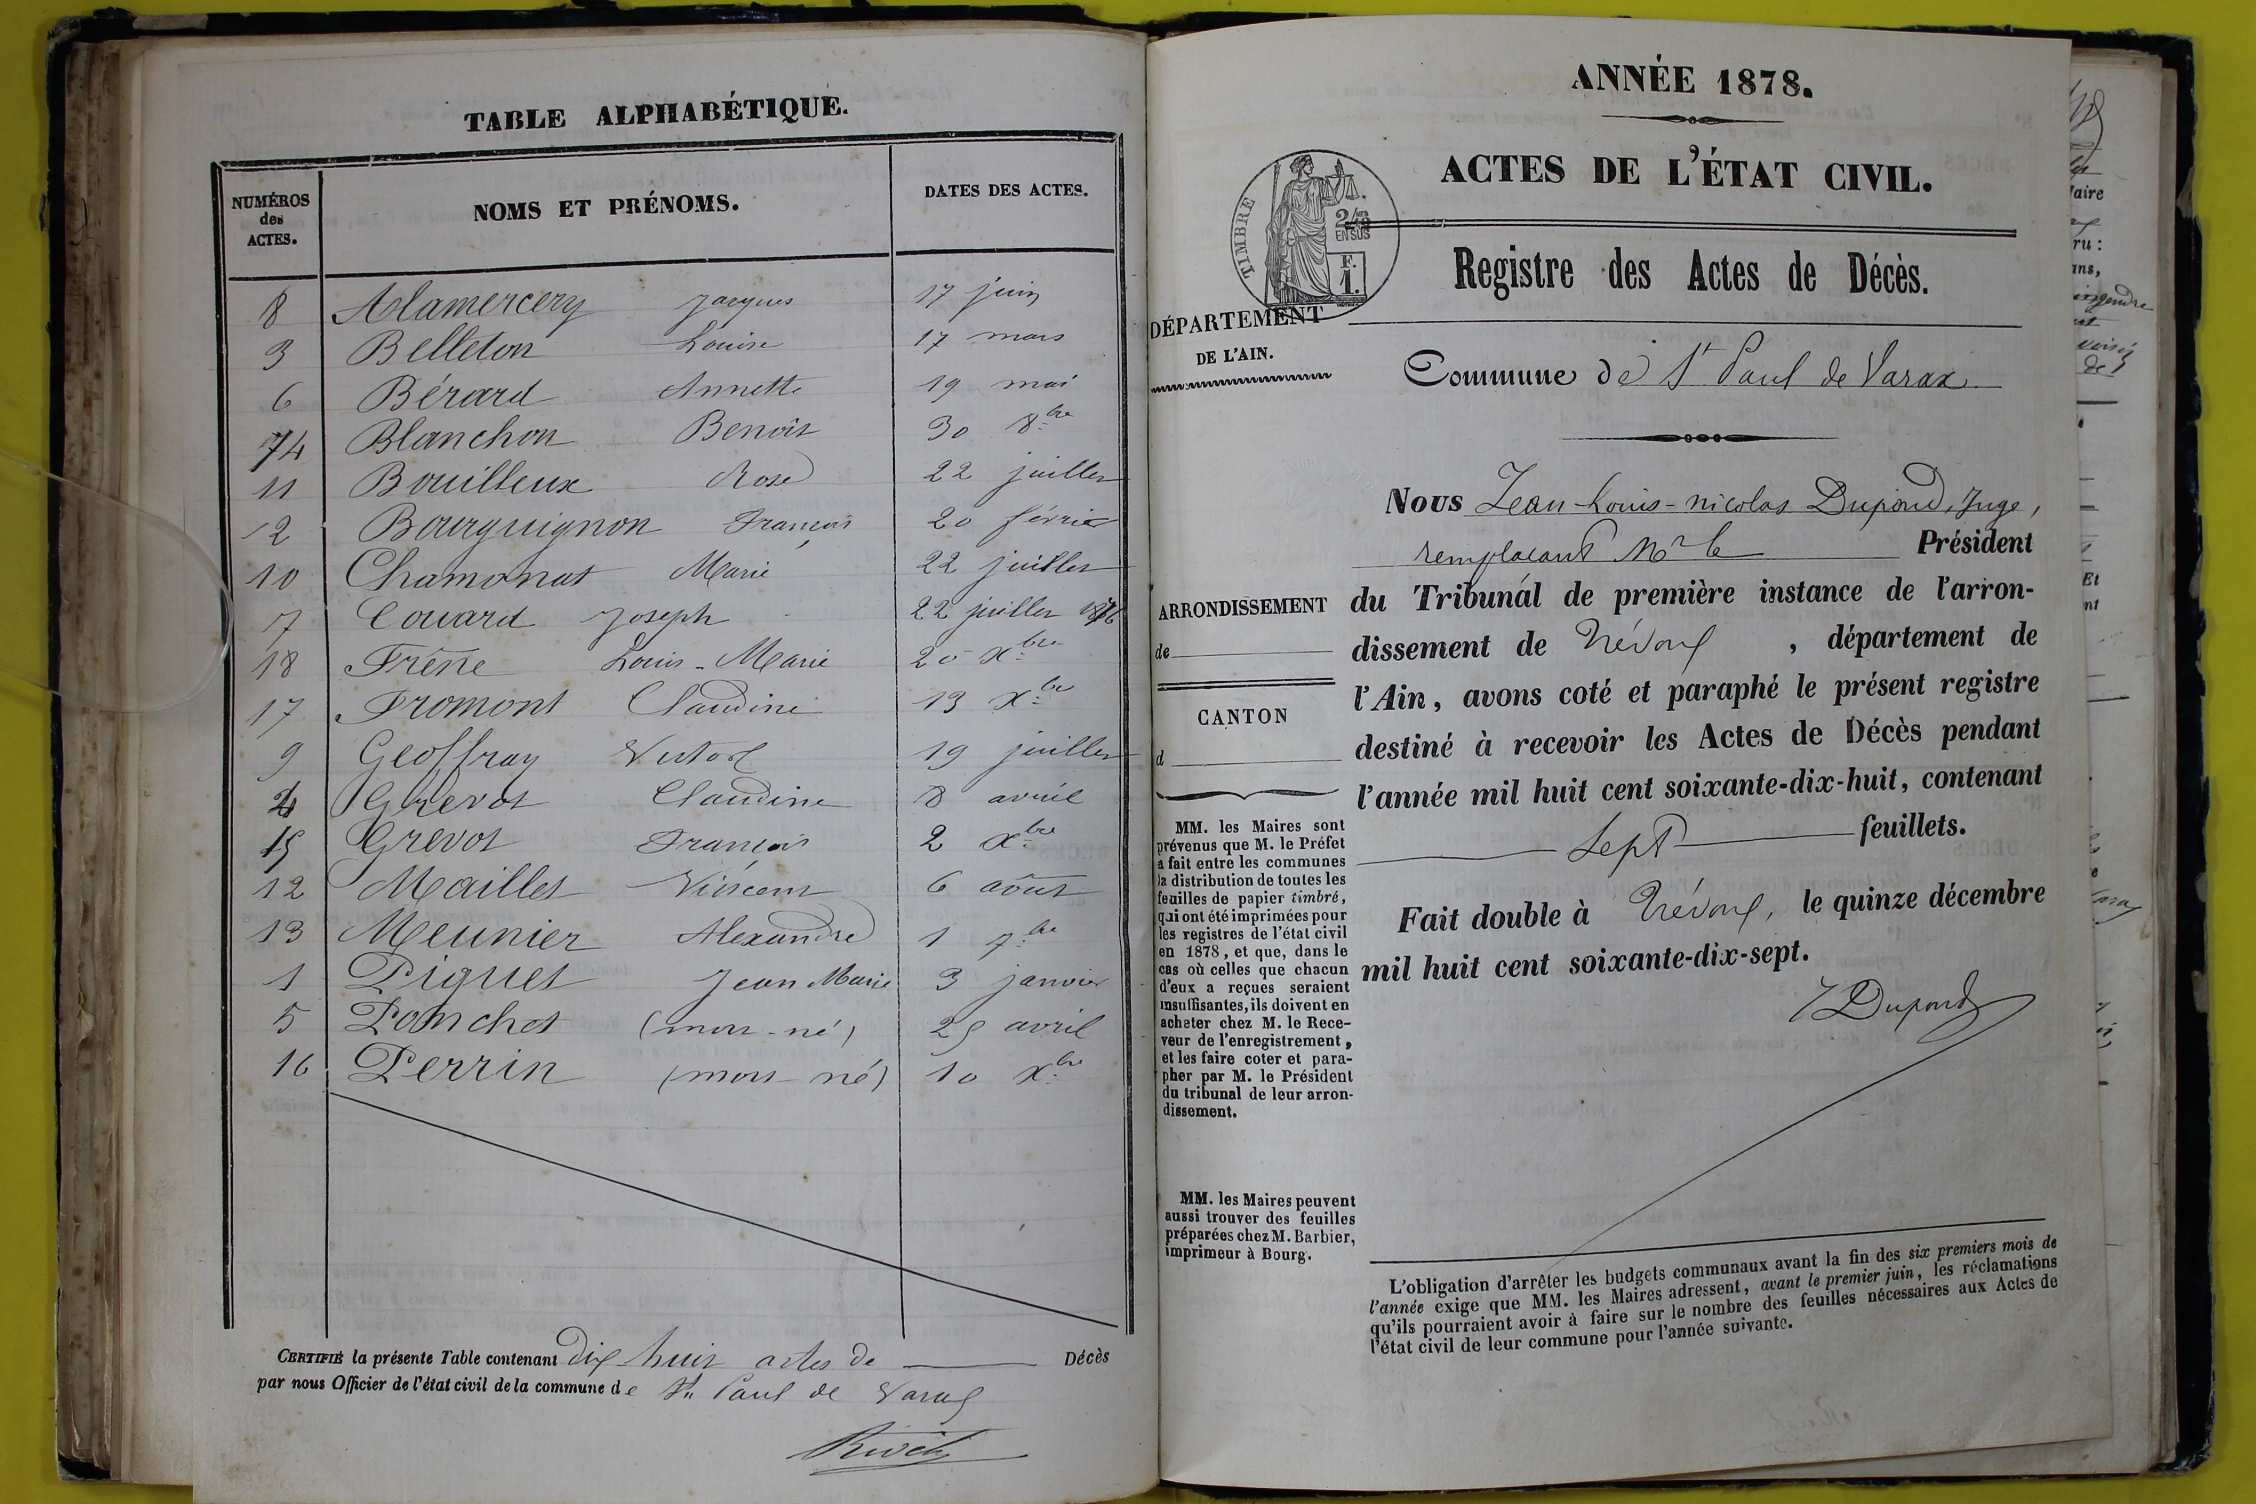 TABLE ALPHABÉTIQUE.
NUMÉROS des ACTES. NOMS ET PRÉNOMS. DATES DES ACTES.
8 Alamercery Jacques 17 juin
3 Belleton Louise 17 mars
6 Bérard Annette 19 mai
14 Blanchon Benoit 30 8bre
11 Bouilleux Rose 22 juillet
2 Bourguignon François 20 février
10 Chamonat Marie 22 juillet
7 Couard Joseph 22 juillet 1876
18 Frêne Louis-Marie 20 Xbre
17 Fromont Claudine 13 Xbre
9 Geoffray Victor 19 juillet
4 Grevot Claudine 8 avril
15 Grevot François 2 Xbre
12 Maillet Vincent 6 août
13 Meunier Alexandre 1 7bre
1 Piquet Jean Marie 3 janvier
5 Ponchet (mort-né) 25 avril
16 Perrin (mort-né) 10 Xbre
CERTIFIÉ la présente Table contenant dix huit actes de Décès
par nous Officier de l'état civil de la commune de St Paul de Varax
ANNÉE 1878.
ACTES DE L'ÉTAT CIVIL.
TIMBRE
2/10 EN SUS
F.
1.
Registre des Actes de Décès.
DÉPARTEMENT
DE L'AIN.
Commune de St Paul de Varax
Nous Jean-Louis-nicolas Dupond, Juge,
remplaçant Mr le Président
du Tribunal de première instance de l'arron-
dissement de Trévoux, département de
l'Ain, avons coté et paraphé le présent registre
destiné à recevoir les Actes de Décès pendant
l'année mil huit cent soixante-dix-huit, contenant
Sept feuillets.
Fait double à Trévoux, le quinze décembre
mil huit cent soixante-dix-sept.
J Dupond
ARRONDISSEMENT
de
CANTON
d
MM. les Maires sont
prévenus que M. le Préfet
a fait entre les communes
la distribution de toutes les
feuilles de papier timbré,
qui ont été imprimées pour
les registres de l'état civil
en 1878, et que, dans le
cas où celles que chacun
d'eux a reçues seraient
insuffisantes, ils doivent en
acheter chez M. le Rece-
veur de l'enregistrement,
et les faire coter et para-
pher par M. le Président
du tribunal de leur arron-
dissement.
MM. les Maires peuvent
aussi trouver des feuilles
préparées chez M. Barbier,
imprimeur à Bourg.
L'obligation d'arrêter les budgets communaux avant la fin des six premiers mois de
l'année exige que MM. les Maires adressent, avant le premier juin, les réclamations
qu'ils pourraient avoir à faire sur le nombre des feuilles nécessaires aux Actes de
l'état civil de leur commune pour l'année suivante.